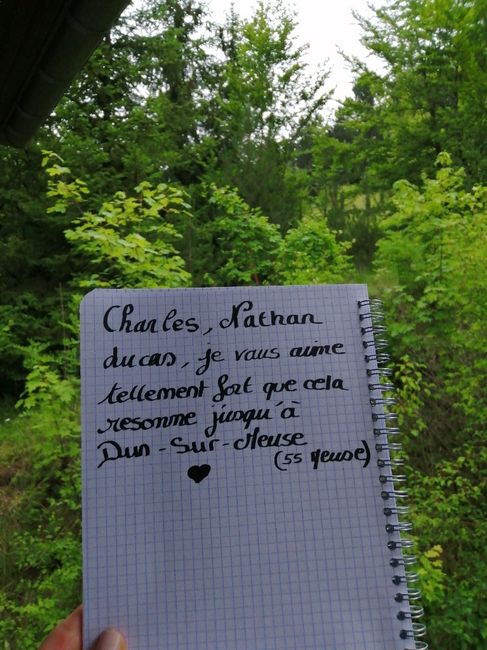 Charles, Nathan
ducas, je vous aime
tellement fort que cela
resonne jusqu'à
Dun-Sur-Meuse
(55 Meuse)